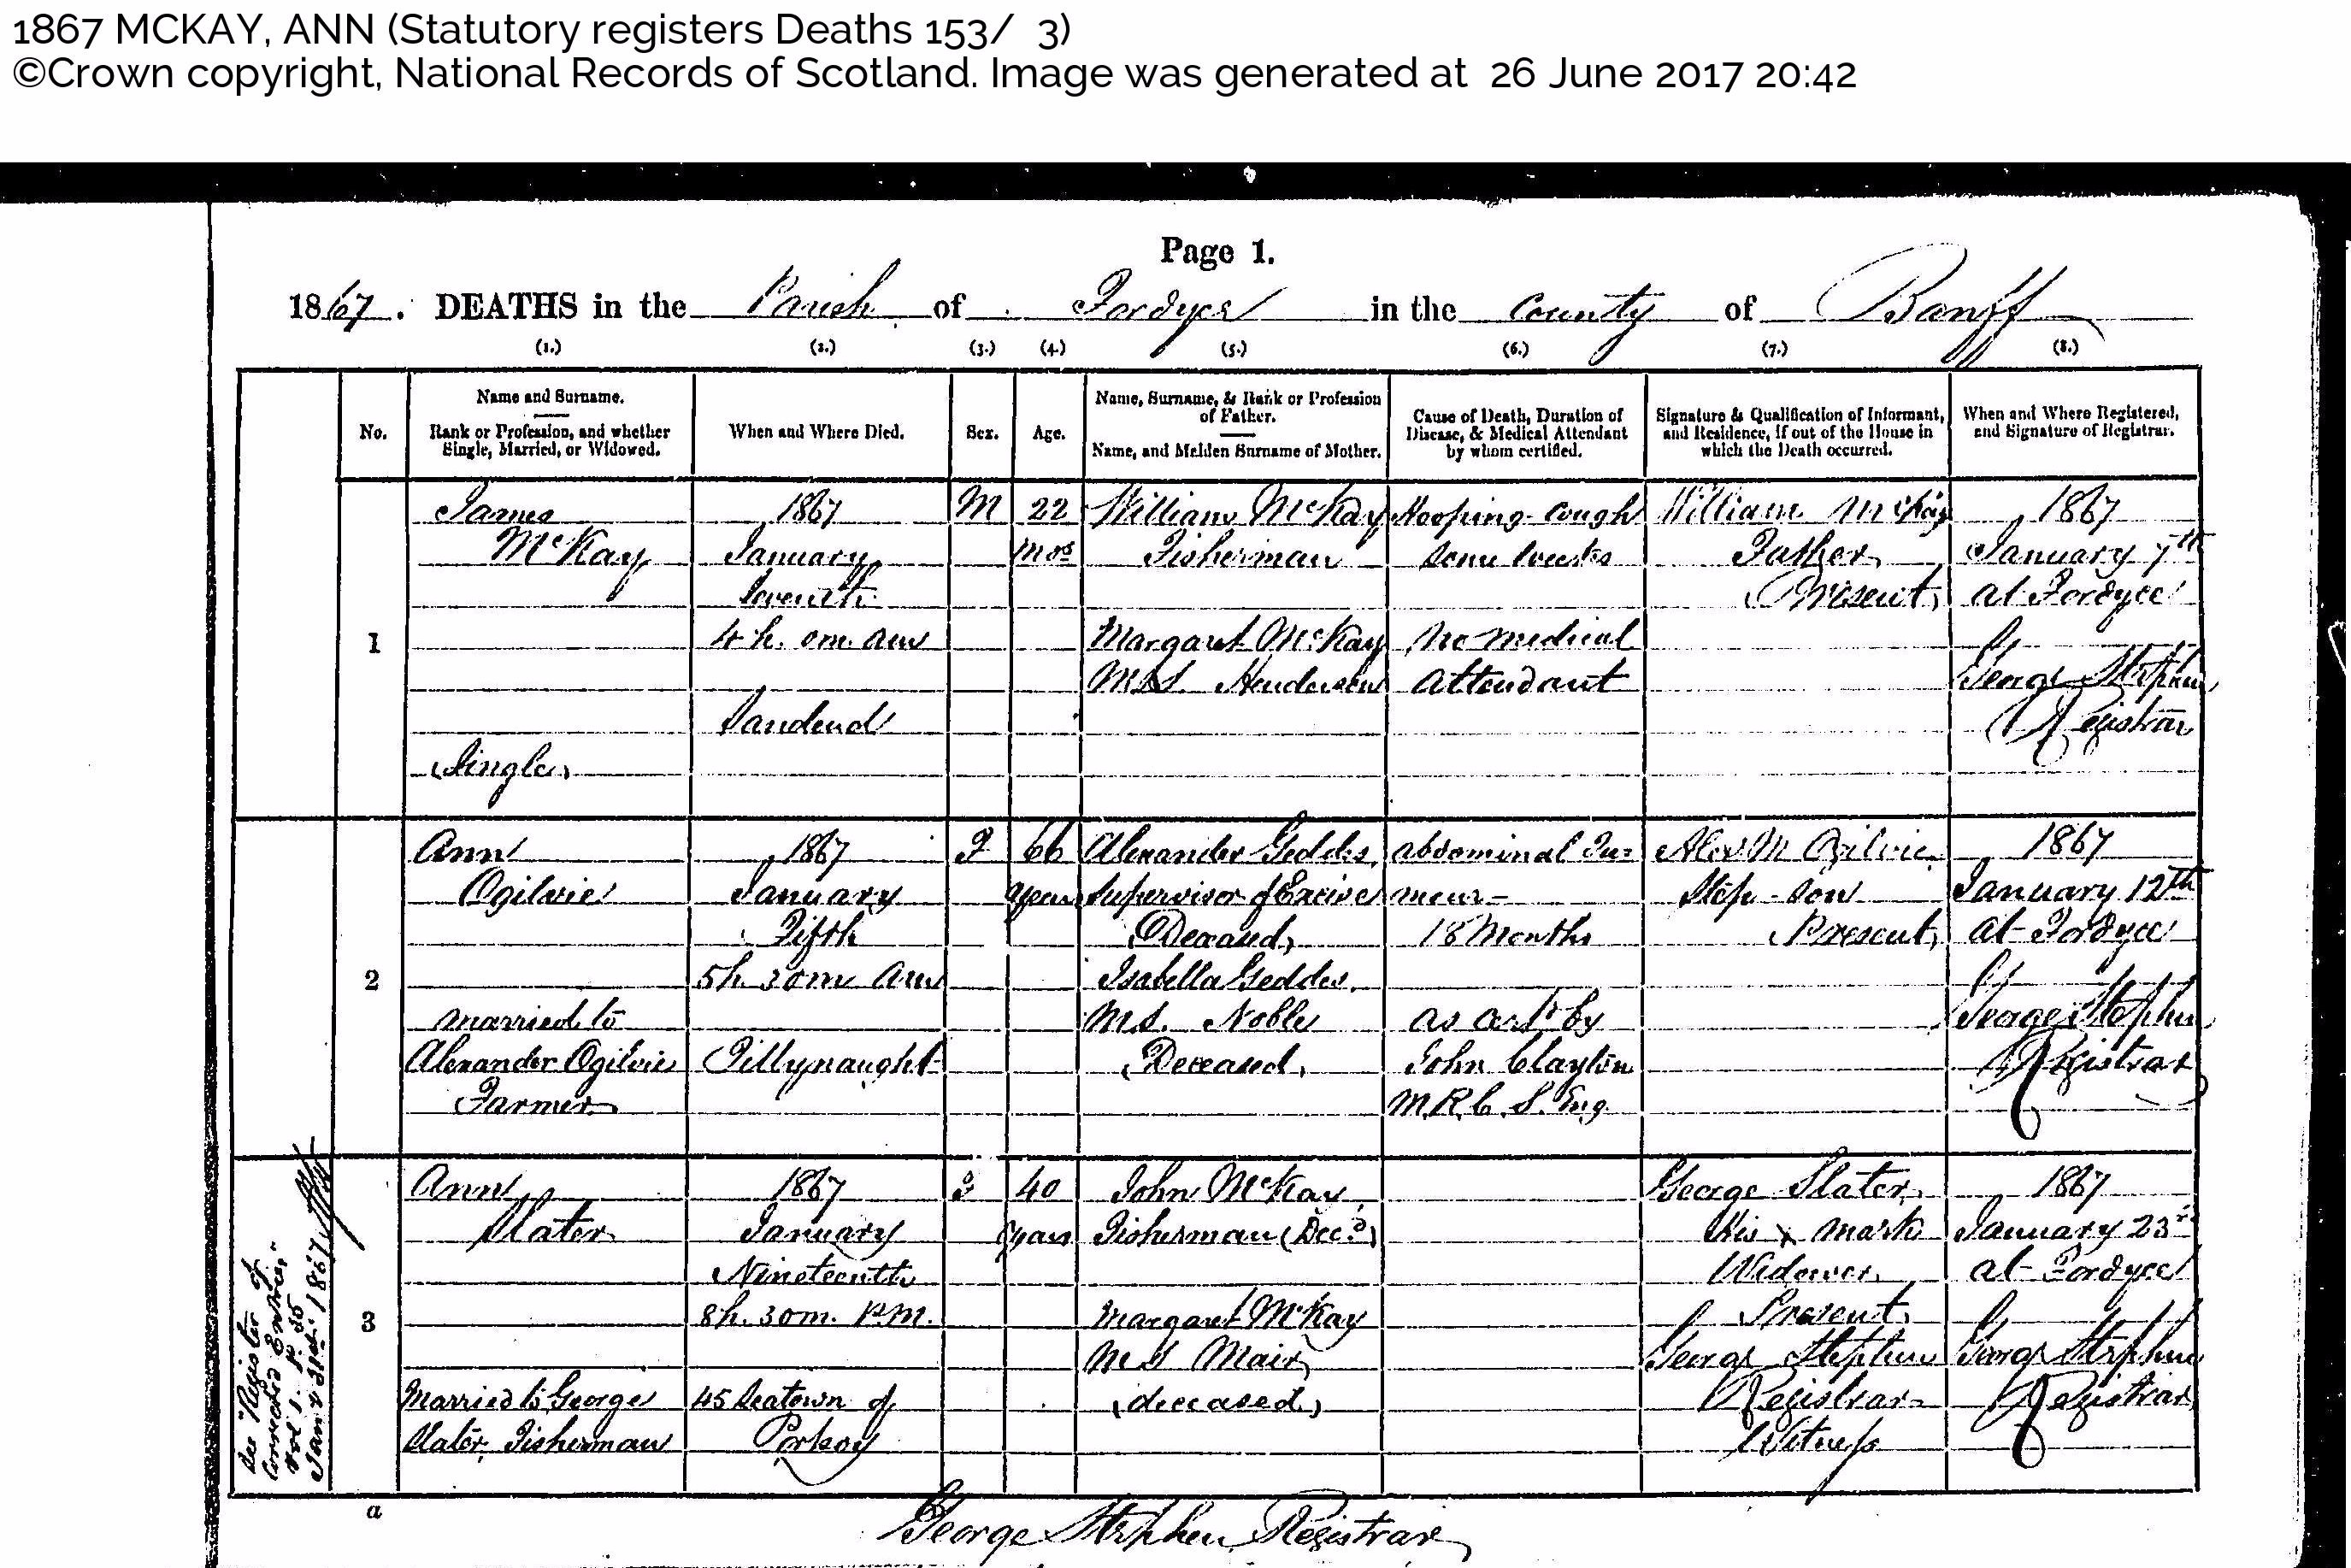 1867 MCKAY, ANN (Statutory registers Deaths 153/ 3)
©Crown copyright, National Records of Scotland. Image was generated at 26 June 2017 20:42
Page 1.
1867. DEATHS in the Parish of Fordyce in the County of Banff
(1.) (2.) (3.) (4.) (5.) (6.) (7.) (8.)
No.
Name and Surname.
Rank or Profession, and whether
Single, Married, or Widowed.
When and Where Died.
Sex.
Age.
Name, Surname, & Rank or Profession
of Father.
Name, and Maiden Surname of Mother.
Cause of Death, Duration of
Disease, & Medical Attendant
by whom certified.
Signature & Qualification of Informant,
and Residence, if out of the House in
which the Death occurred.
When and Where Registered,
and Signature of Registrar.
1
James
McKay
(Single)
1867
January
Seventh
4 h. 0m. AM
Sandend
M
22
Mos
William McKay
Fisherman
Margaret McKay
M.S. Henderson
Hooping-Cough
some weeks
No medical
Attendant
William McKay
Father
(Present)
1867
January 7th
at Fordyce
George Stephen
Registrar
2
Ann
Ogilvie
married to
Alexander Ogilvie
Farmer
1867
January
Fifth
5h. 30m AM
Tillynaught
F
66
years
Alexander Geddes
Supervisor of Excise
(Deceased)
Isabella Geddes
M.S. Noble
(Deceased)
abdominal Tu=
mour-
18 Months
as certd by
John Clayton
M.R.C.S. Eng.
Alexr M Ogilvie
Step-Son
(Present)
1867
January 12th
at Fordyce
George Stephen
Registrar
3
See "Register of
Corrected Entries"
Vol 1. P 35
Jany 31st 1867
Ann
Slater
Married to George
Slater, Fisherman
1867
January
Nineteenth
8h. 30m. P.M.
45 Seatown of
Portsoy
F
40
years
John McKay
Fisherman (Decd)
Margaret McKay
M S Mair
(deceased)
George Slater
his x mark
Widower
Present
George Stephen
Registrar
Witness
1867
January 23rd
at Fordyce
George Stephen
Registrar
a
George Stephen Registrar